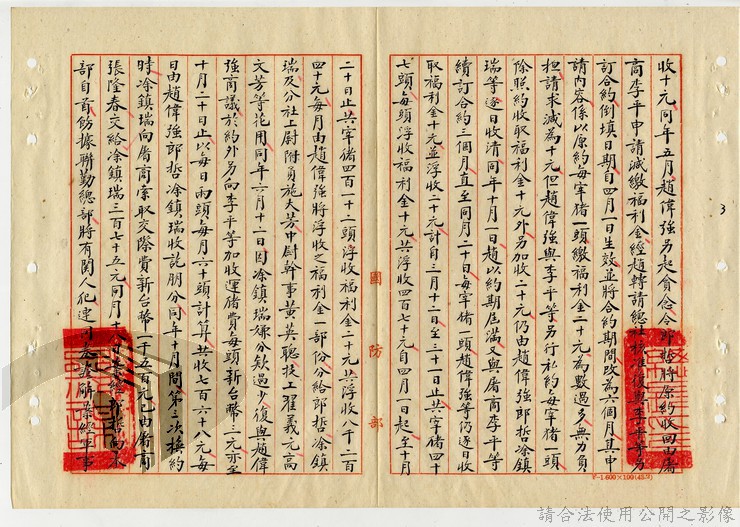 收十元同年五月趙偉強另起貪念令郎哲將原約收回由屠
商李平申請減繳福利金經趙轉請總社核准復與李平等另
訂合約倒填日期自四月一日生效並將合約期間改為六個月其中
請內容係以原約每宰豬一頭繳福利金二十元為數過多無力負
担請求減為十元但趙偉強與李平等另行私約每宰豬一頭
除照約收取福利金十元外另加收二十元仍由趙偉強郎哲凃鎮
瑞等逐日收清同年十月一日趙以約期屆滿又與屠商李平等
續訂合約三個月直至同月二十日每宰豬一頭趙偉強等仍逐日收
取福利金十元並浮收二十元計自三月十二日至三十一日止共宰豬四十
七頭每頭浮收福利金十元共浮收四百七十元自四月一日起至十月
二十日止共宰豬四百一十二頭浮收福利金二十元共浮收八千二百
四十元每月由趙偉強將浮收之福利金一部份分給郎哲凃鎮
瑞及分社上尉附員施天芳中尉幹事黃英聰技工翟義元高
文芳等花用同年六月十二日因凃鎮瑞嫌分款過少復與趙偉
強商議於約外另向李平等加收運豬費每頭新台幣二元亦至
十月二十日止以每日兩頭每月六十頭計算共收七百六十八元每
日由趙偉強郎哲凃鎮瑞收訖朋分同年十月間第三次換約
時凃鎮瑞向屠商索取交際費新台幣一千五百元已由屠商
張隆春交給凃鎮瑞三百七十五元同月十八日
部自首飭據聯勤總部將有関人犯逮
國防部
3
請合法使用公開之影像